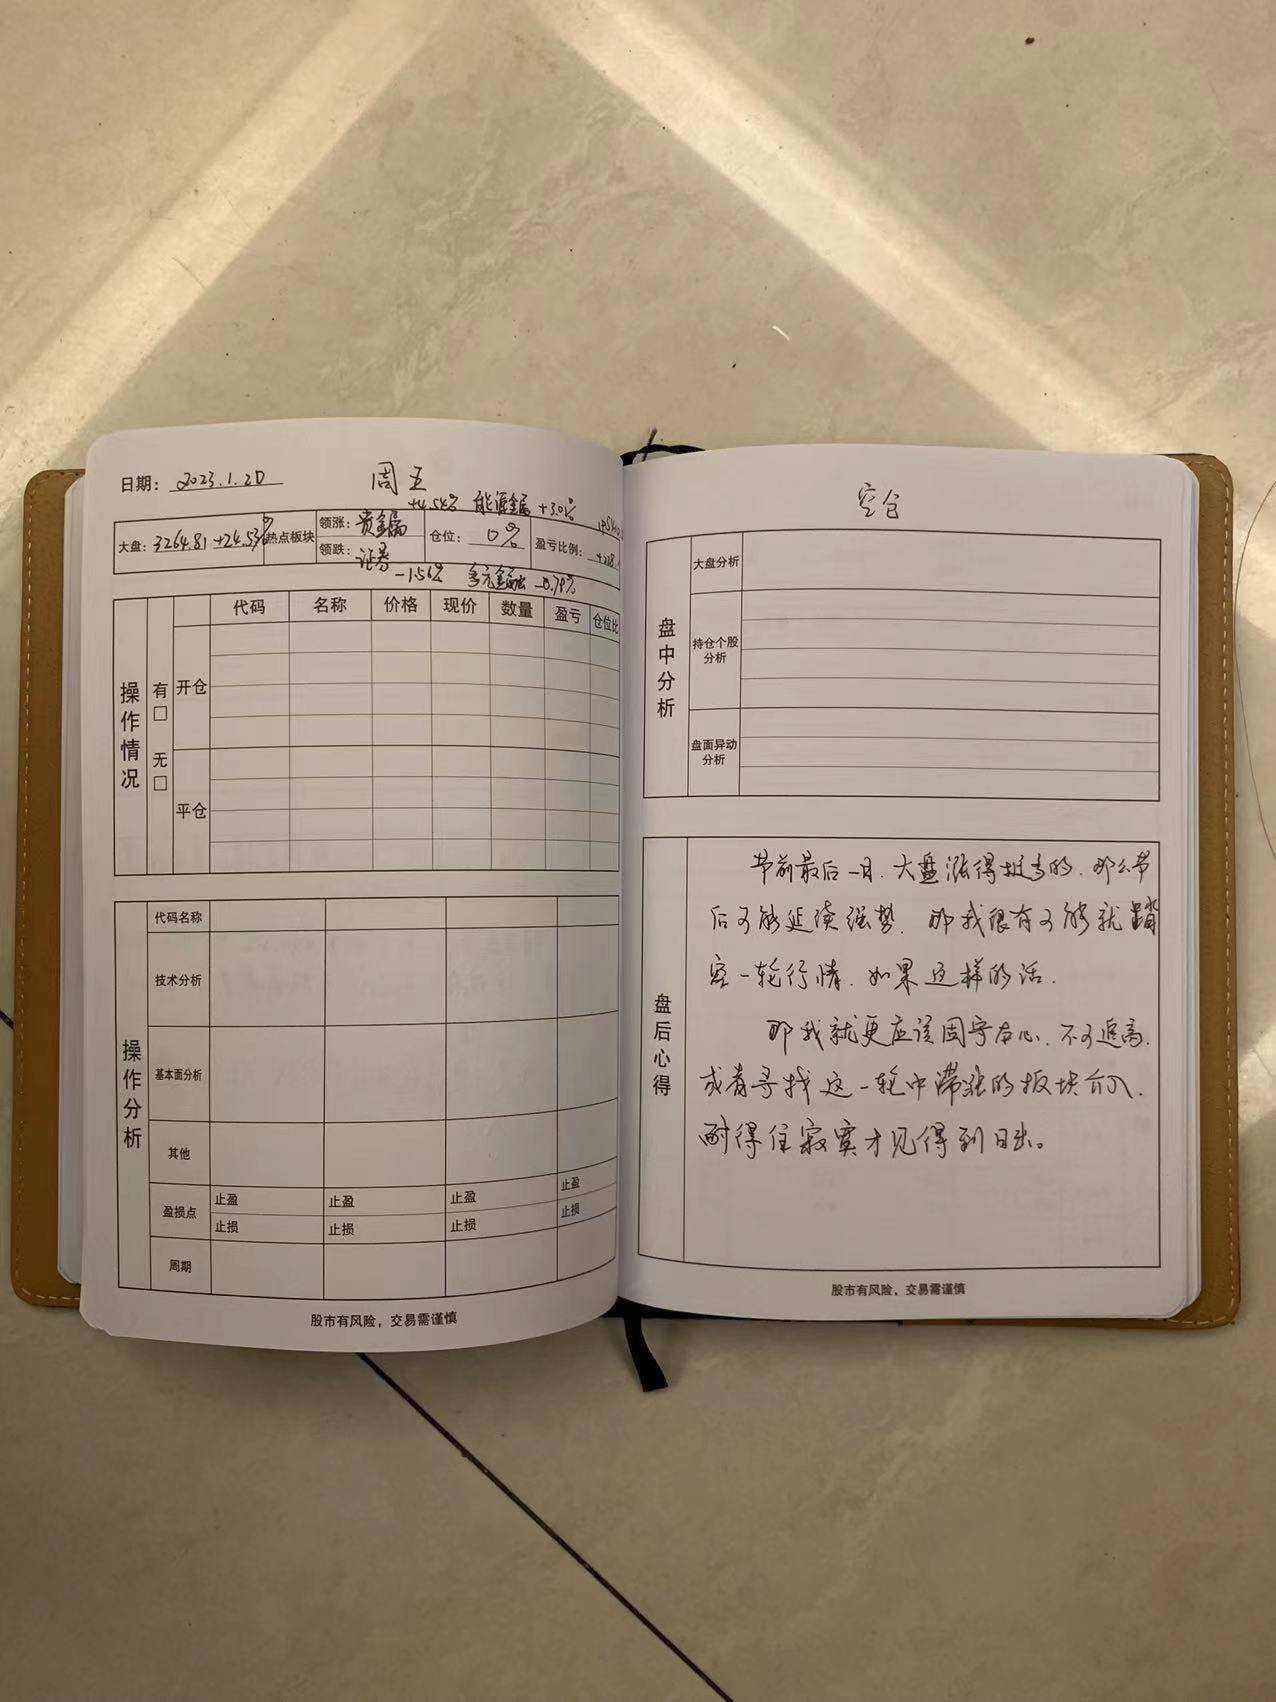 日期： 2023.1.20 周五
+4.54% 能源金属 +3.01%
大盘： 3264.81 +24.53 热点板块 领涨： 贵金属 仓位： 0% 盈亏比例：
领跌： 证券
-1.56% 多元金融 -0.79%
代码 名称 价格 现价 数量 盈亏 仓位比
操作情况
有 □
无 □
开仓
平仓
操作分析
代码名称
技术分析
基本面分析
其他
盈损点
止盈 止盈 止盈 止盈
止损 止损 止损 止损
周期
股市有风险，交易需谨慎
空仓
盘中分析
大盘分析
持仓个股
分析
盘面异动
分析
盘后心得
节前最后一日.大盘涨得挺多的.那么节
后可能延续强势. 那我很有可能就踏
空一轮行情.如果这样的话.
那我就更应该固守本心.不可追高.
或者寻找这一轮中滞涨的板块介入.
耐得住寂寞才见得到日出。
股市有风险，交易需谨慎